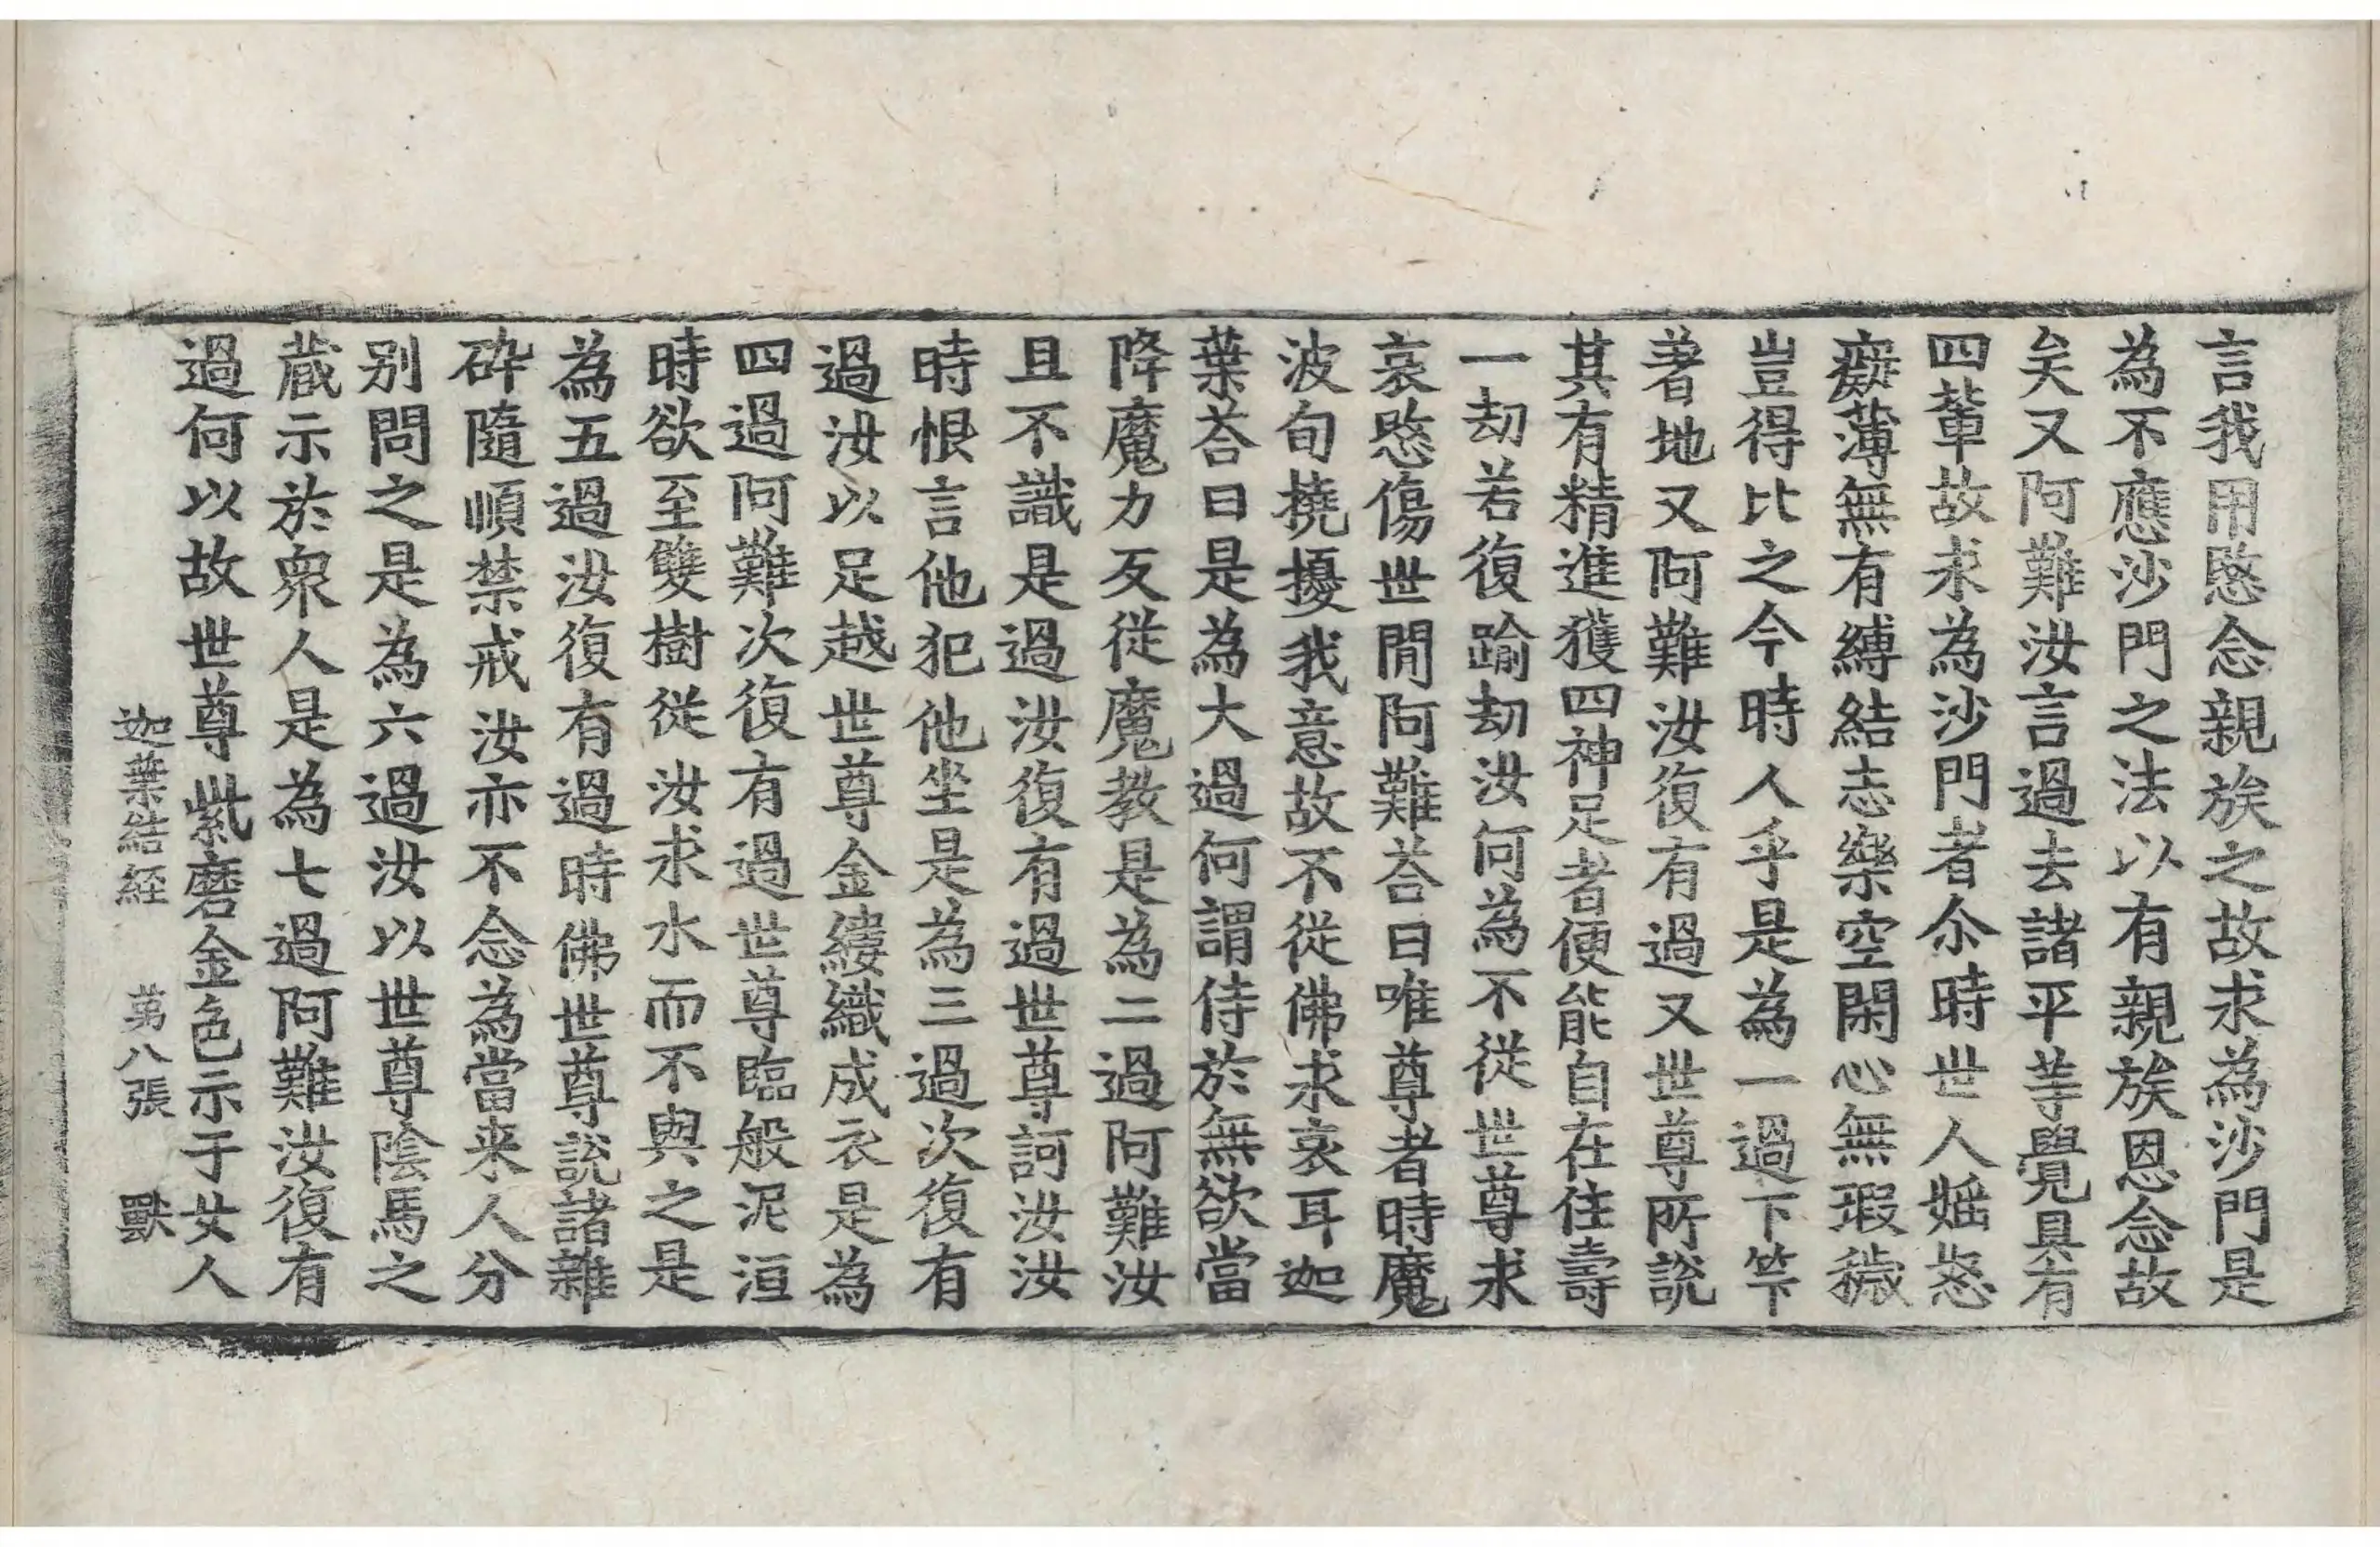 言我用愍念親族之故求為沙門是
為不應沙門之法以有親族恩念故
矣又阿難汝言過去諸平䓁覺具有
四輩故求為沙門者尒時世人婬恚
癡薄無有縛結志樂空閑心無瑕穢
豈得比之今時人乎是為一過下竿
著地又阿難汝復有過又世尊所說
其有精進獲四神足者便能自在住壽
一劫若復踰劫汝何為不從世尊求
哀愍傷世閒阿難荅曰唯尊者時魔
波旬撓擾我意故不從佛求哀耳迦
葉荅曰是為大過何謂侍於無欲當
降魔力反從魔教是為二過阿難汝
且不識是過汝復有過世尊訶汝汝
時恨言他犯他坐是為三過次復有
過汝以足越世尊金縷織成衣是為
四過阿難次復有過世尊臨般泥洹
時欲至雙樹從汝求水而不與之是
為五過汝復有過時佛世尊說諸雜
碎隨順禁戒汝亦不念為當来人分
别問之是為六過汝以世尊陰馬之
藏示於衆人是為七過阿難汝復有
過何以故世尊紫磨金色示于女人
迦葉結経　苐八張　獸